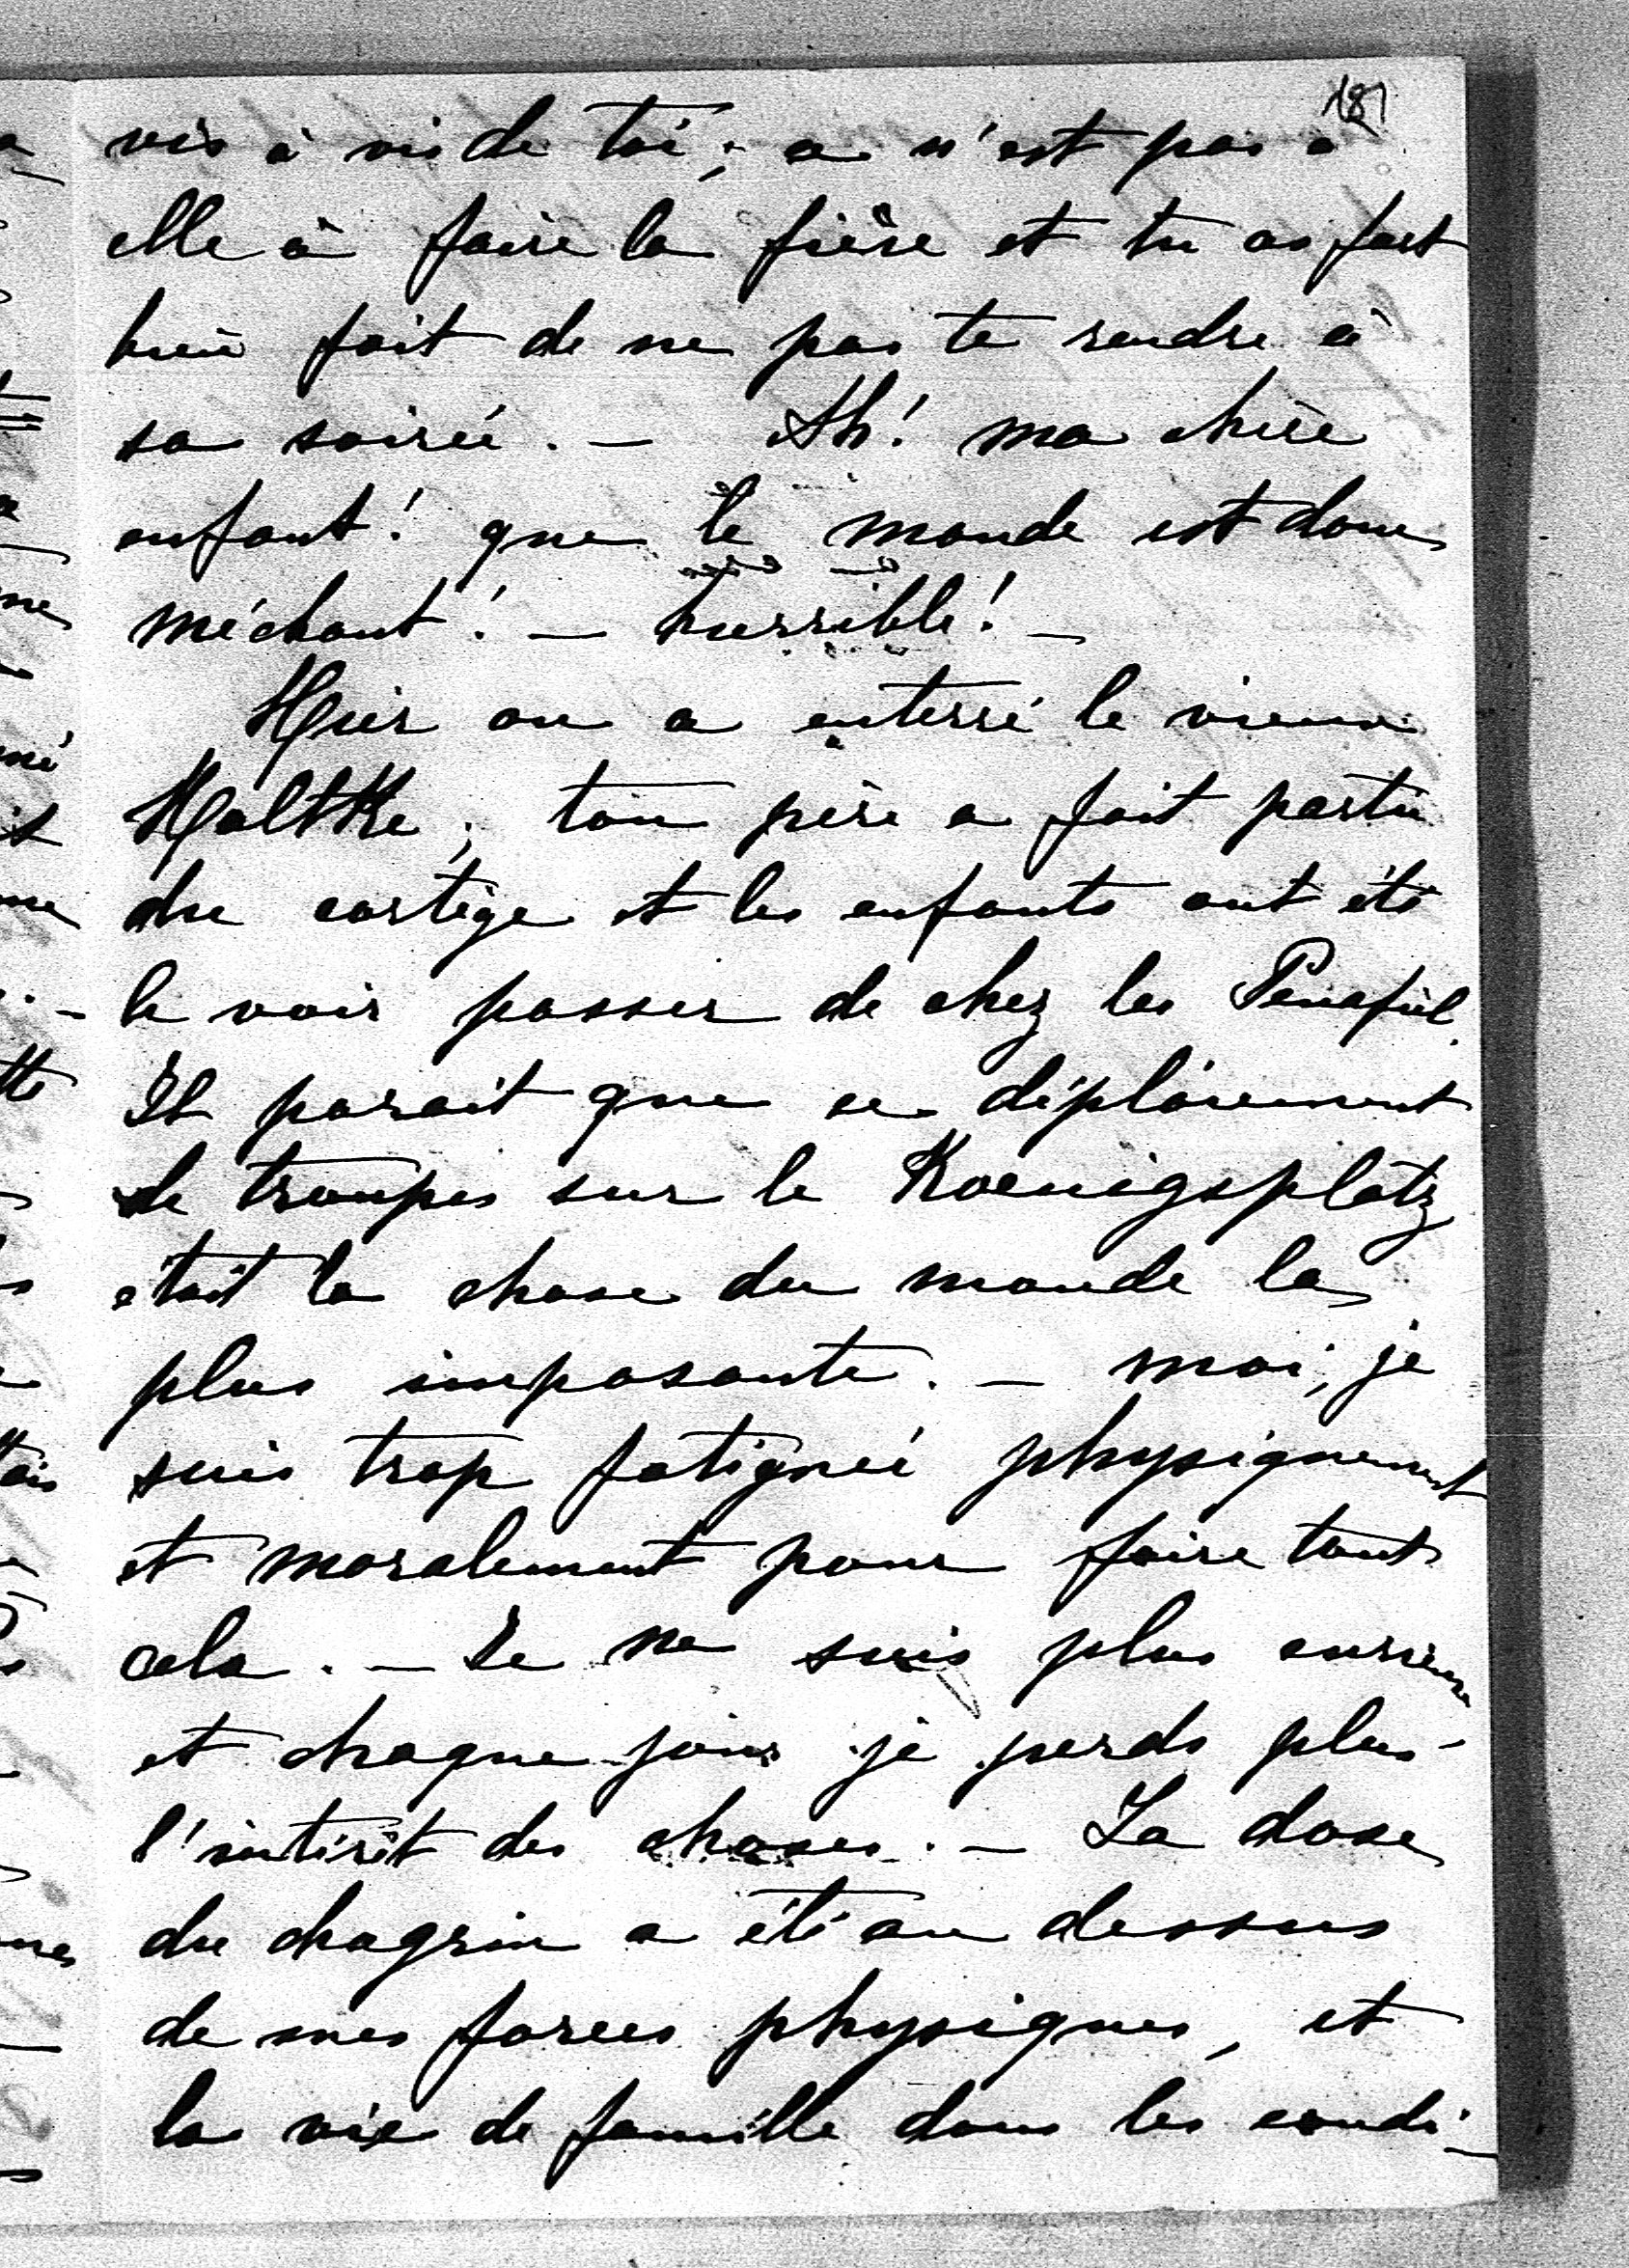 187
vis à vis de toi; ce n'est pas à
elle à faire la fière et tu as fort
bien fait de ne pas te rendre à
sa soirée. — Ah! ma chère
enfant! que le monde est donc
méchant! — horrible! —
Hier on a enterré le vieux
Moltke; ton père a fait partie
du cortège et les enfants ont été
le voir passer de chez les Penafiel.
Il parait que ce déploiement
de troupes sur le Koenigsplatz
était la chose du monde la
plus imposante. — moi, je
suis trop fatiguée physiquement
et moralement pour faire tout
cela. — Je ne suis plus curieuse
et chaque jour je perds plus
l'intérêt des choses. — La dose
du chagrin a été au dessus
de mes forces physiques, et
la vie de famille dans les condi-